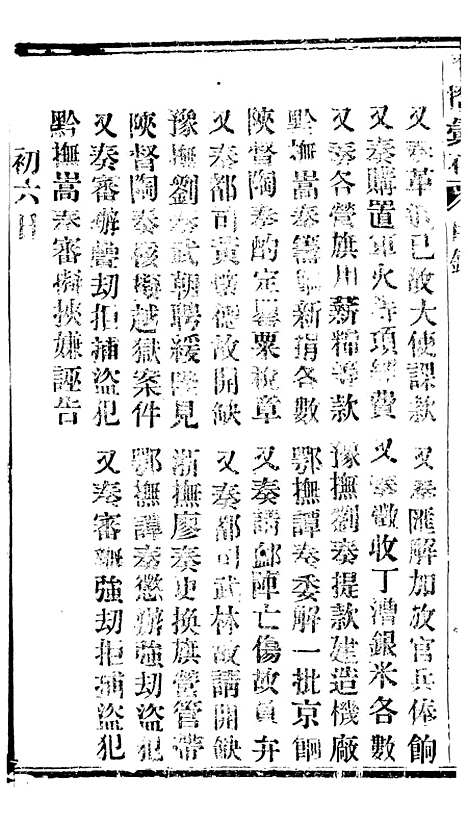 又奏革 已故大使課款
又奏匯解加放官兵俸餉
又奏購置軍火等項經費
又奏徵收丁漕銀米各數
又奏各營旗用薪糧等款
豫撫劉奏提款建造機廠
黔撫嵩奏籌 新捐各數
鄂撫譚奏委解一批京餉
陝督陶奏酌定罌粟稅章
又奏請卹陣亡傷故員弁
又奏都司黃 德故開缺
又奏都司武林故請開缺
豫撫劉奏武朝聘緩 見
浙撫廖奏更換旗營管帶
陝督陶奏核擬越獄案件
鄂撫譚奏懲辦強劫盜犯
又奏審辦 劫拒捕盜犯
又奏審辦強劫拒捕盜犯
黔撫嵩奏審擬挾嫌誣告
初六日